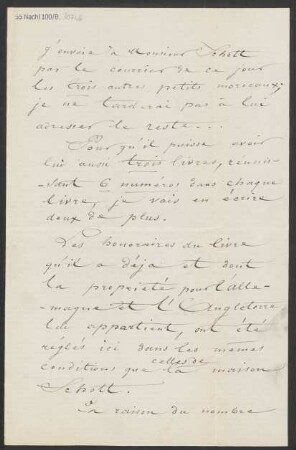 55 Nachl 100/B,
J'envoie à Monsieur Schott
par le courrier de ce jour
les trois autres petits morceaux;
je ne tarderai pas à lui
adresser le reste...
Pour qu'il puisse avoir
lui aussi trois livres, réunis-
-sant 6 numéros dans chaque
livre, je vais en écrire
deux de plus.
Les honoraires du livre
qu'il a déja et dont
la propriété pour l'Alle-
magne et l'Angleterre
lui appartient, ont été
réglés ici dans les mêmes
conditions que celles de la maison
Schott.
La raison du nombre